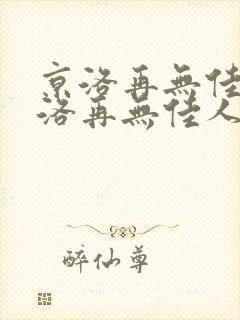 京洛再無佳
洛再無佳人
醉仙尊